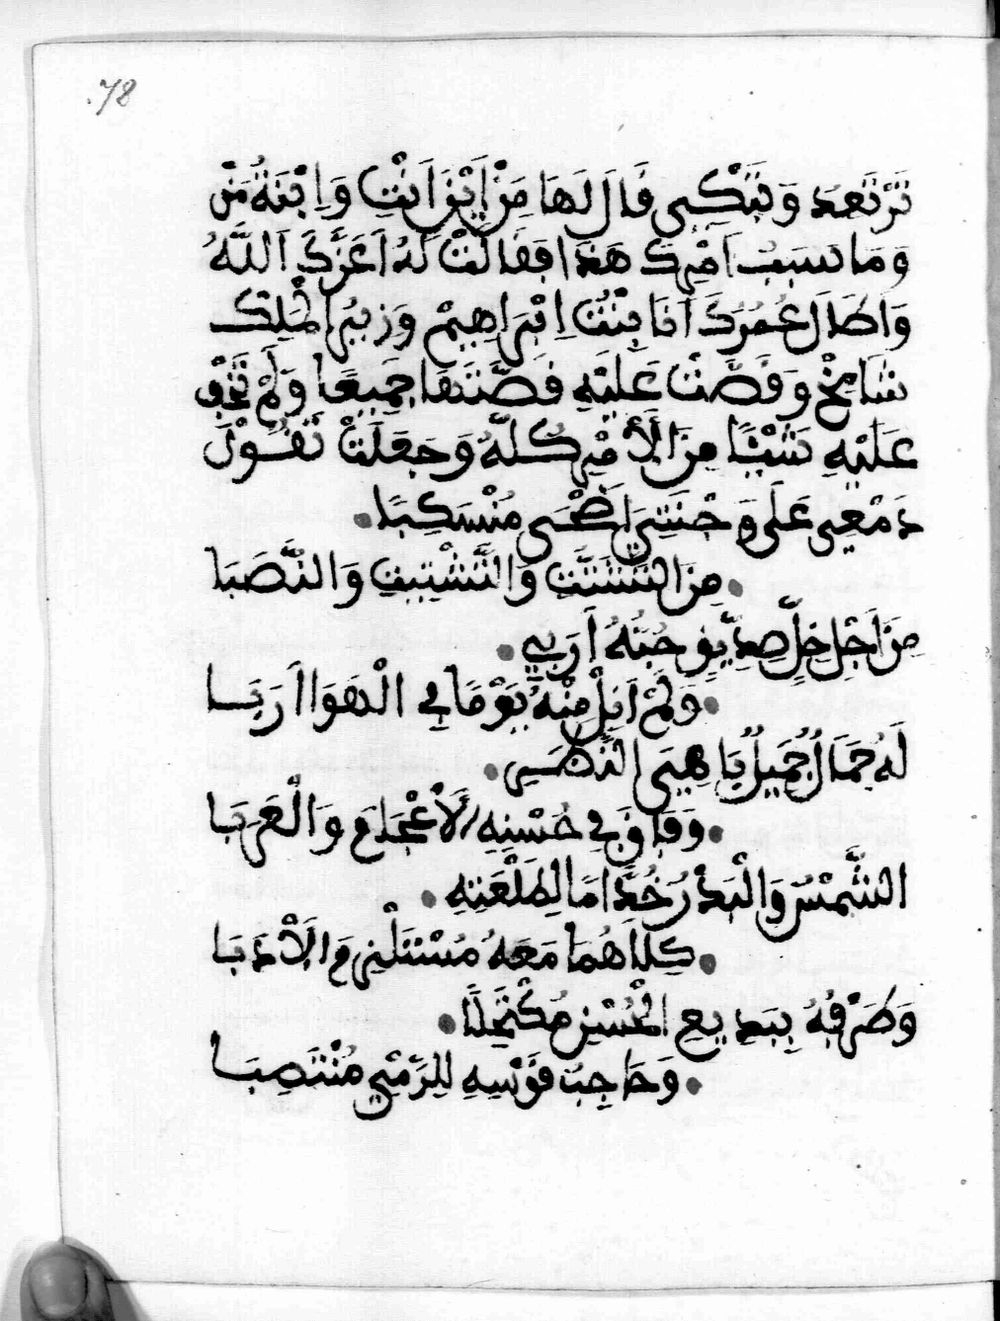 78
تَرْتَعِدُ وَتَبْكِى فَالَ لَهَا مِنْ اَيْنَ اَنْتِ وَاِبْنَةُ مَنْ
وَمَا سَبَبُ اَمْرِكَ هَذَا فَقَالَتْ لَهُ اَعَزَّكَ اَللَّهُ
وَاَطَالَ عُمُرَكَ اَنَا بِنْتُ اِبْرَاهِيمْ وَزِيرُ الْمَلِكْ
شَامِخْ وَقَصَّتْ عَلَيْهِ قِصَّتَهَا جَمِيعًا وَلَمْ تُخْفِ
عَلَيْهِ شَيْئًا مِنَ الْأَمْرِ كُلِّهِ وَجَعَلَتْ تَقُولْ
دَمْعِى عَلَى وَجْنَتِى اَضْحَى مُنْسَكِبًا
مِنَ التَّشَتُّتِ وَالتَّشْتِيتِ وَالنَّصَبَا
مِنَ اَجْلِ خِلٍّ صِدِّيقٍ حُبُّهُ اَرَبِي
وَلَمْ اَنِلْ مِنْهُ يَوْمًا فِي الْهَوَا اَرَبَا
لَهُ جَمَالٌ جَمِيلٌ بَاهِيَ النَّضَرِ
وَفَاقَ فِي حُسْنِهِ الْأَعْجَامَ وَالْعَرَبَا
الشَّمْسُ وَالْبَدْرُ خُدَّامًا لِطَلْعَتِهِ
كِلَاهُمَا مَعَهُ مُسْتَلْزِمَ الْأَدَبَا
وَطَرْفُهُ بِبَدِيعِ الْحُسْنِ مُكْتَحِلًا
وَحَاجِبُ قَوْسِهِ لِلرَّمْيِ مُنْتَصِبَا